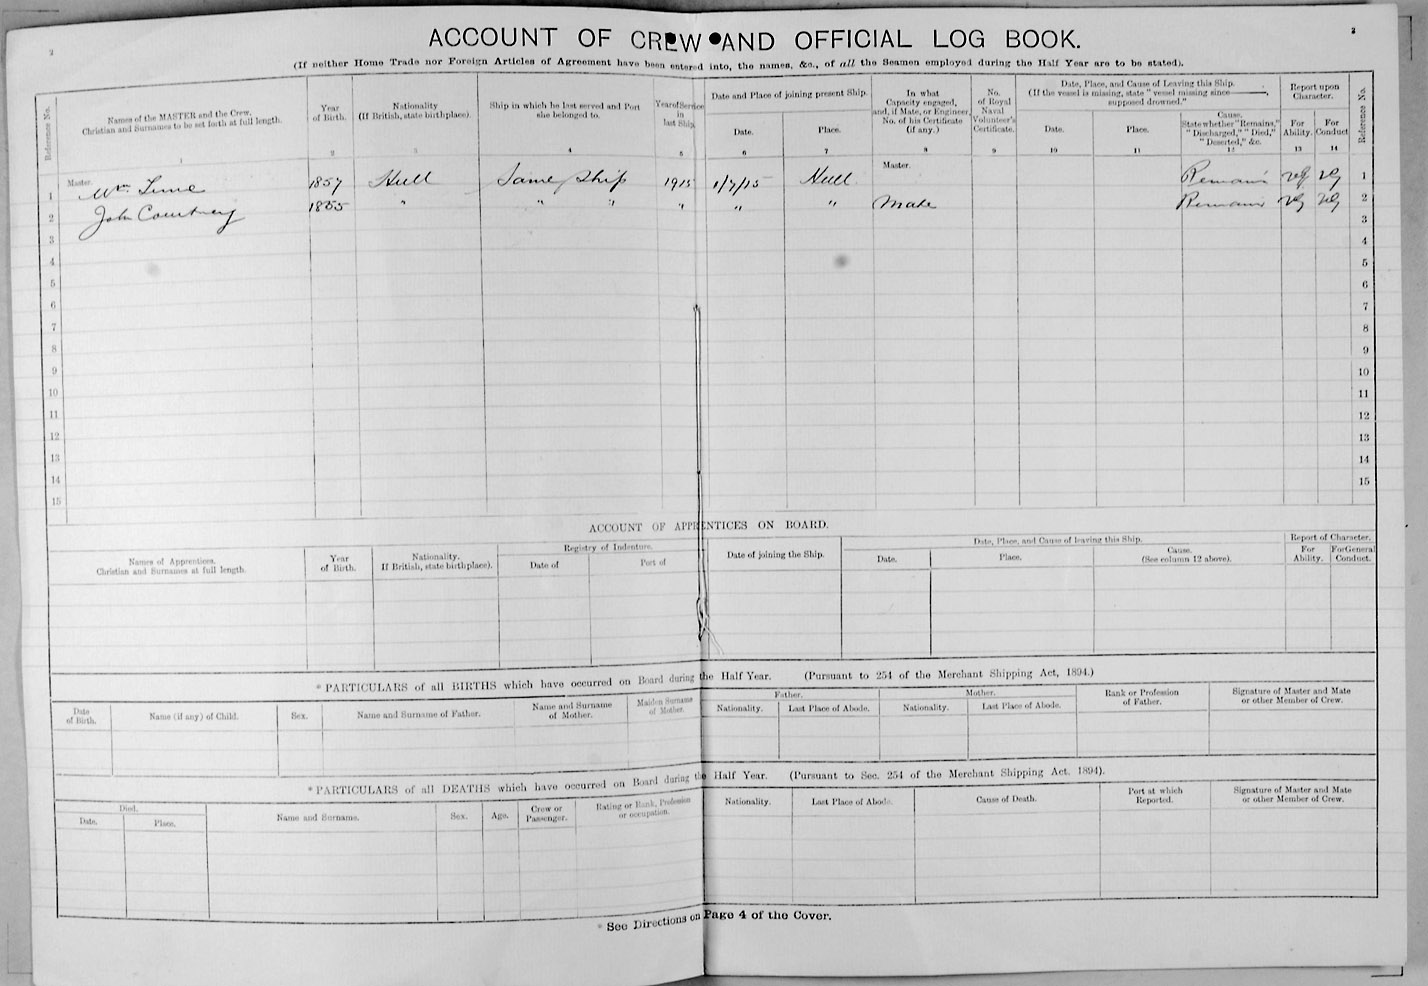 2
2
ACCOUNT OF CREW AND OFFICIAL LOG BOOK.
(If neither Home Trade nor Foreign Articles of Agreement have been entered into, the names, &c., of all the Seamen employed during the Half Year are to be stated).
Reference No.
Names of the MASTER and the Crew.
Christian and Surnames to be set forth at full length.
1
Year of Birth.
2
Nationality
(If British, state birthplace).
3
Ship in which he last served and Port she belonged to.
4
Year of Service in last Ship.
5
Date and Place of joining present Ship.
Date.
6
Place.
7
In what Capacity engaged, and, if Mate, or Engineer, No. of his Certificate (if any.)
8
No. of Royal Naval Volunteer's Certificate.
9
Date, Place, and Cause of Leaving this Ship.
(If the vessel is missing, state "vessel missing since ———, supposed drowned."
Date.
10
Place.
11
Cause.
State whether "Remains," "Discharged," "Died," "Deserted," &c.
12
Report upon Character.
For Ability.
13
For Conduct
14
Reference No.
1 Master. Wm 1857 Hull Same Ship 1915 1/7/15 Hull Master. Remains VG VG 1
2 John Courtney 1855 " " " " " " Mate Remains VG VG 2
3 3
4 4
5 5
6 6
7 7
8 8
9 9
10 10
11 11
12 12
13 13
14 14
15 15
ACCOUNT OF APPRENTICES ON BOARD.
Names of Apprentices.
Christian and Surnames at full length.
Year of Birth.
Nationality.
If British, state birthplace).
Registry of Indenture.
Date of
Port of
Date of joining the Ship.
Date, Place, and Cause of leaving this Ship.
Date.
Place.
Cause.
(See column 12 above).
Report of Character.
For Ability.
For General Conduct.
* PARTICULARS of all BIRTHS which have occurred on Board during the Half Year. (Pursuant to 254 of the Merchant Shipping Act, 1894.)
Date of Birth.
Name (if any) of Child.
Sex.
Name and Surname of Father.
Name and Surname of Mother.
Maiden Surname of Mother.
Father.
Nationality.
Last Place of Abode.
Mother.
Nationality.
Last Place of Abode.
Rank or Profession of Father.
Signature of Master and Mate or other Member of Crew.
* PARTICULARS of all DEATHS which have occurred on Board during the Half Year. (Pursuant to Sec. 254 of the Merchant Shipping Act, 1894).
Died.
Date.
Place.
Name and Surname.
Sex.
Age.
Crew or Passenger.
Rating or Rank, Profession or occupation.
Nationality.
Last Place of Abode.
Cause of Death.
Port at which Reported.
Signature of Master and Mate or other Member of Crew.
* See Directions on Page 4 of the Cover.